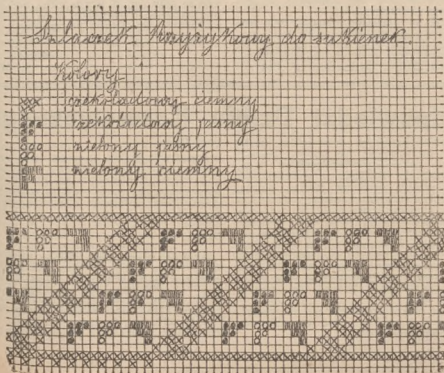 Szlaczek Krzyżykowy do sukienek.
Kolory:
czekoladowy ciemny
czekoladowy jasny
zielony jasny
zielony ciemny